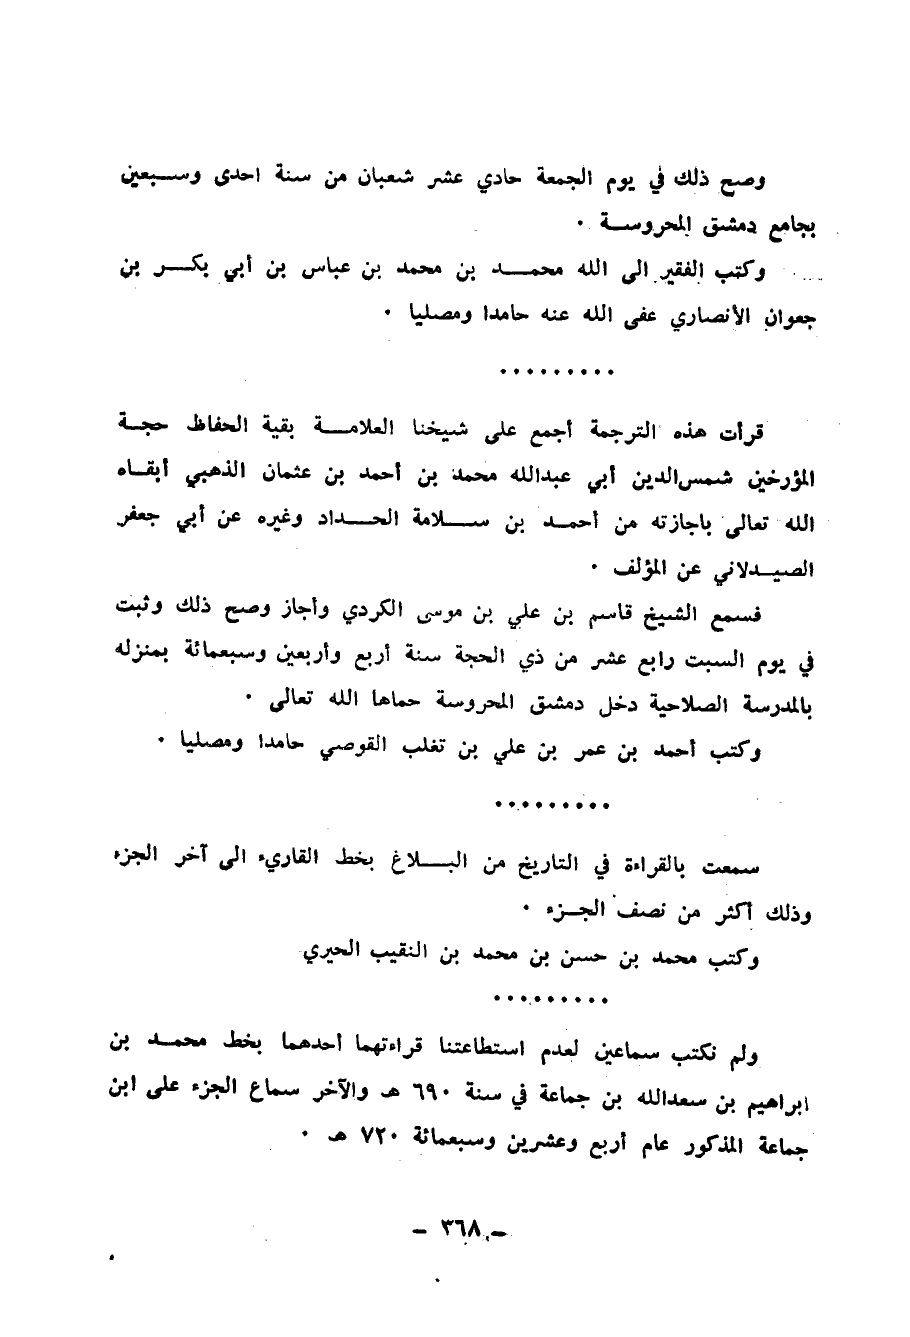 وصح ذلك في يوم الجمعة حادي عشر شعبان من سنة احدى وسبعين
بجامع دمشق المحروسة ٠
وكتب الفقير الى الله محمد بن محمد بن عباس بن أبي بكر بن
جعوان الأنصاري عفى الله عنه حامدا ومصليا ٠
٠٠٠٠٠٠٠٠٠
قرأت هذه الترجمة أجمع على شيخنا العلامة بقية الحفاظ حجة
المؤرخين شمس الدين أبي عبدالله محمد بن أحمد بن عثمان الذهبي أبقاه
الله تعالى باجازته من أحمد بن سلامة الحداد وغيره عن أبي جعفر
الصيدلاني عن المؤلف ٠
فسمع الشيخ قاسم بن علي بن موسى الكردي وأجاز وصح ذلك وثبت
في يوم السبت رابع عشر من ذي الحجة سنة أربع وأربعين وسبعمائة بمنزله
بالمدرسة الصلاحية دخل دمشق المحروسة حماها الله تعالى ٠
وكتب أحمد بن عمر بن علي بن تغلب القوصي حامدا ومصليا ٠
٠٠٠٠٠٠٠٠٠
سمعت بالقراءة في التاريخ من البلاغ بخط القاريء الى آخر الجزء
وذلك أكثر من نصف الجزء ٠
وكتب محمد بن حسن بن محمد بن النقيب الحيري
٠٠٠٠٠٠٠٠٠
ولم نكتب سماعين لعدم استطاعتنا قراءتهما أحدهما بخط محمد بن
ابراهيم بن سعدالله بن جماعة في سنة ٦٩٠ هـ والآخر سماع الجزء على ابن
جماعة المذكور عام أربع وعشرين وسبعمائة ٧٢٠ هـ ٠
— ٣٦٨ —